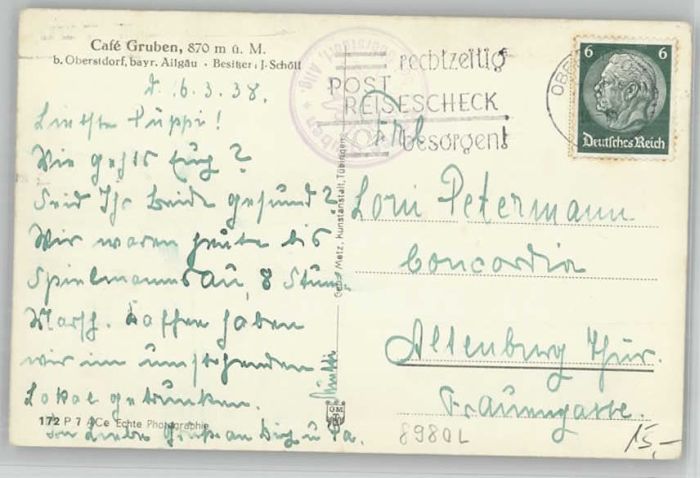 Café Gruben, 870 m ü. M.
b. Oberstdorf, bayr. Allgäu · Besitzer: J. Schöll
d. 16.3.38.
Liebste Puppi!
Wie gehts Euch?
Seid Ihr beide gesund?
Wir waren heute bis
Spielmannsau, 8 Stund.
Marsch. Kaffee haben
wir im umstehenden
Lokal getrunken.
Die Lieben Grüße an Dich u. Pa.
Mutti
172 P 7 ACe Echte Photographie
Gebr. Metz, Kunstanstalt, Tübingen
GMT
rechtzeitig
POST
REISESCHECK
besorgen!
6 6
Deutsches Reich
Frl.
Lori Petermann
Concordia
Altenburg Thür.
Frauengasse.
8980L
15,-